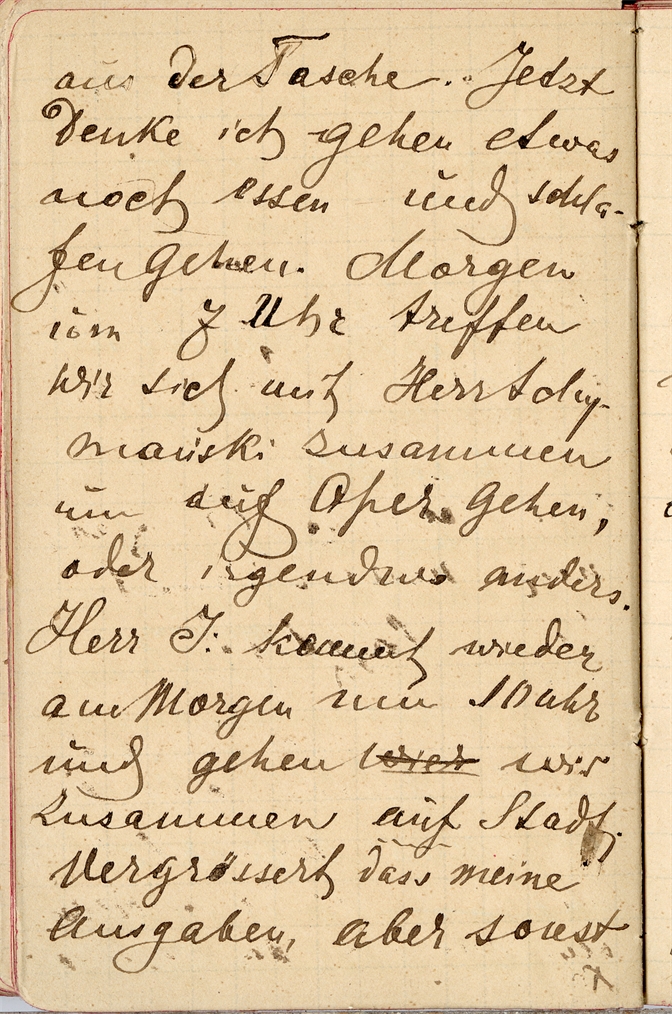 aus der Tasche. Jetzt
Denke ich gehen etwas
noch essen und schla-
fen Gehen. Morgen
um 7 Uhr treffen
wir sich mit Herr Schy-
mański zusammen
um auf Oper Gehen,
oder irgendwo anders.
Herr J: kommt wieder
am Morgen um 10 uhr
und gehen wier wir
zusammen auf Stadt.
Vergrössert dass meine
Ausgaben, aber sonst